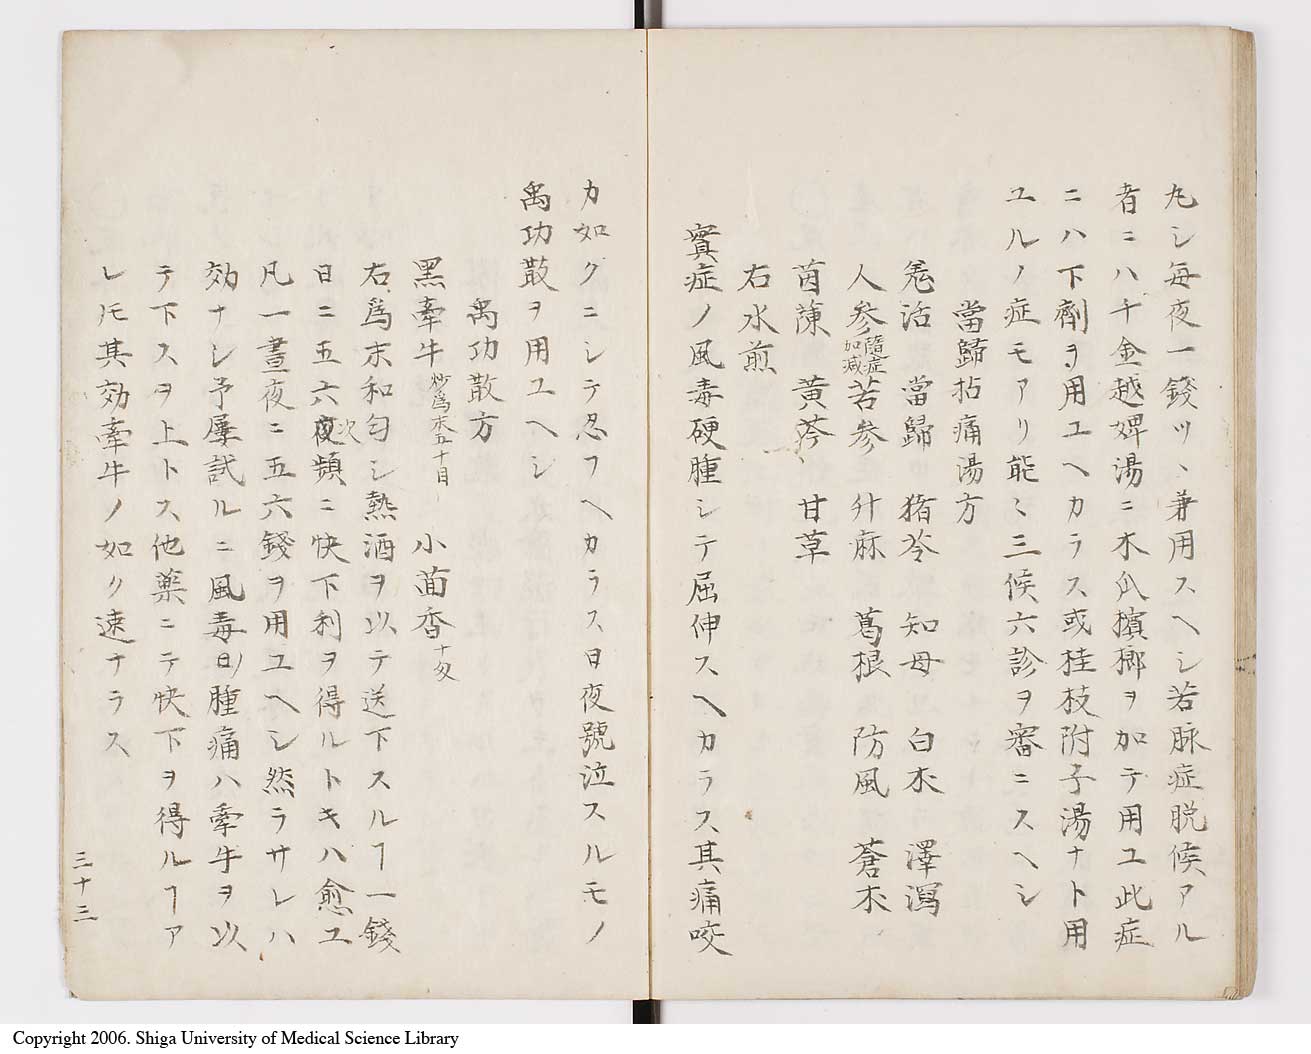 丸シ毎夜一錢ツヽ兼用スヘシ若脉症脱候アル
者ニハ千金越婢湯ニ木瓜檳榔ヲ加テ用ユ此症
ニハ下劑ヲ用ユヘカラス或桂枝附子湯ナト用
ユルノ症モアリ能〻三候六診ヲ審ニスヘシ
當歸拈痛湯方
羌活 當歸 猪苓 知母 白朮 澤瀉
人參隨症加減苦參 升麻 葛根 防風 蒼朮
茵陳 黄芩 甘草
右水煎
實症ノ風毒硬腫シテ屈伸スヘカラス其痛咬
カ如クニシテ忍フヘカラス日夜號泣スルモノ
禹功散ヲ用ユヘシ
禹功散方
黑牽牛炒爲末五十目 小茴香十匁
右爲末和匀シ熱酒ヲ以テ送下スルヿ一錢
日ニ五六次頻ニ快下利ヲ得ルトキハ愈ユ
凡一晝夜ニ五六錢ヲ用ユヘシ然ラサレハ
効ナシ予屢試ルニ風毒ノ腫痛ハ牽牛ヲ以
テ下スヲ上トス他藥ニテ快下ヲ得ルヿア
レ𪜈其効牽牛ノ如ク速ナラス
三十三
Copyright 2006. Shiga University of Medical Science Library